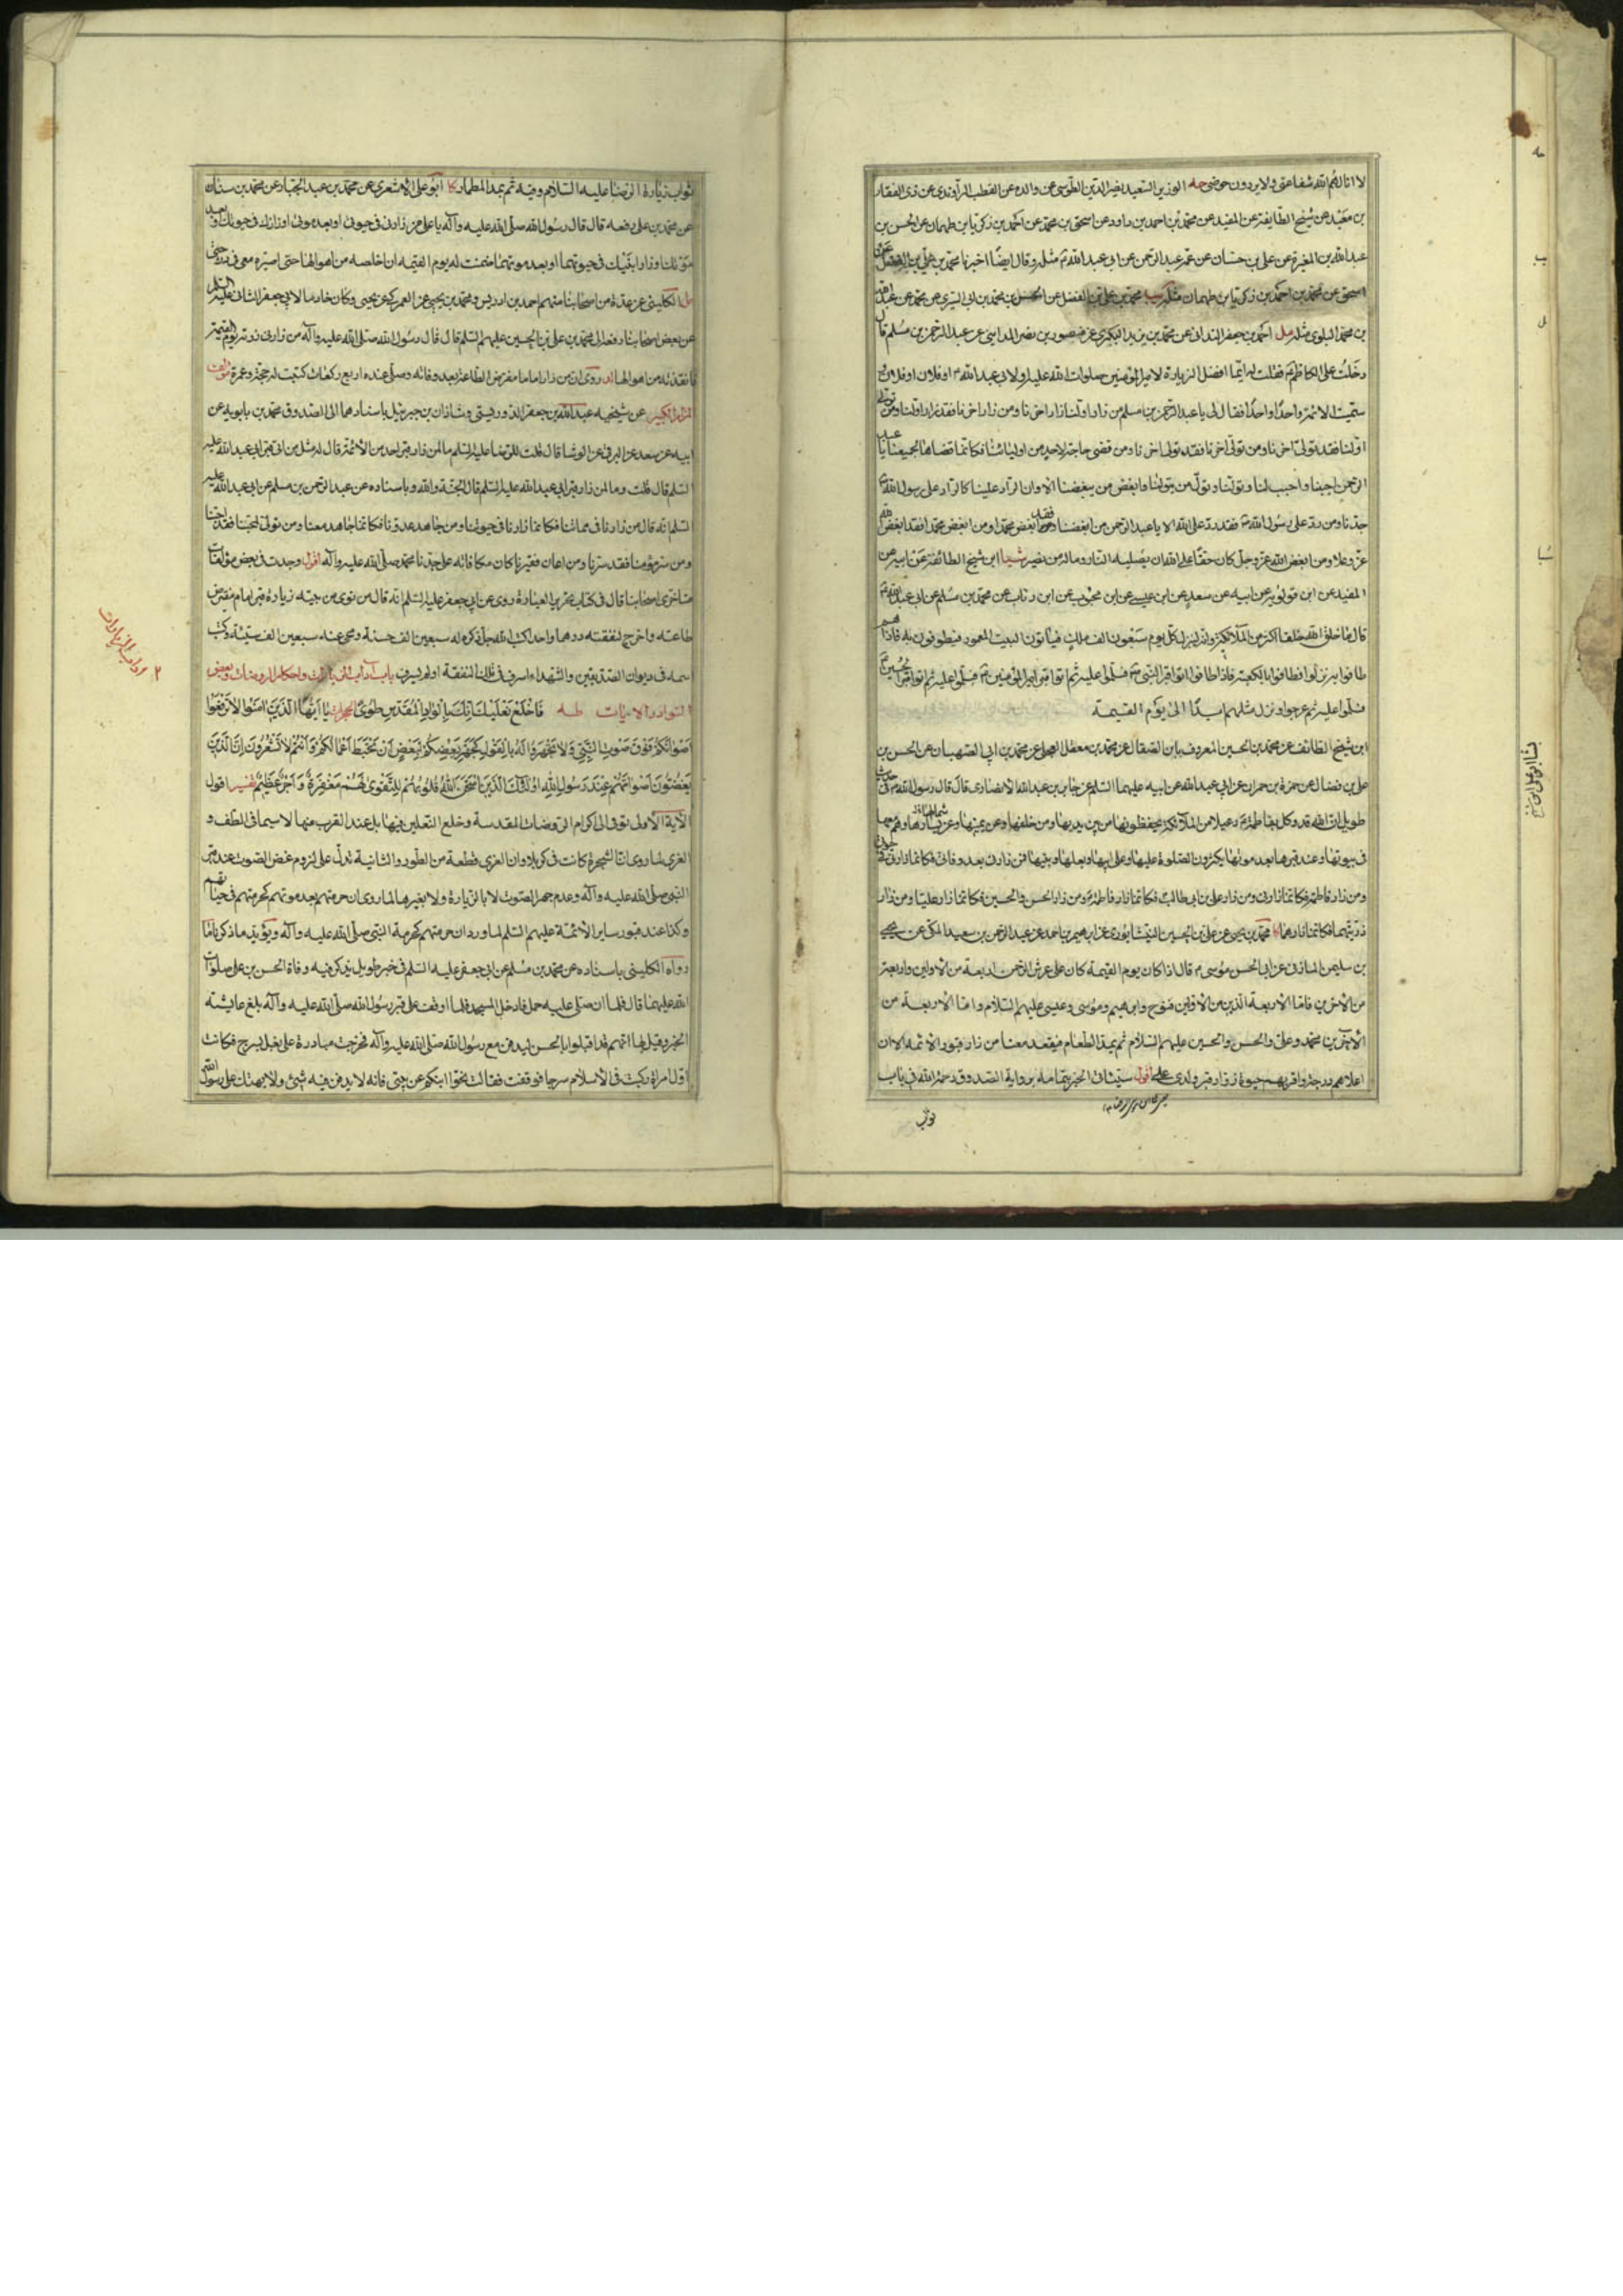 لا انالهم الله شفاعتى ولا يردون حوضى حه الوزير السعيد نصير الدين الطوسى عن والده عن القطب الراوندى عن ذى الفقار
بن معبد عن شيخ الطايفة عن المفيد عن محمد بن احمد بن داود عن اسحق بن محمد عن احمد بن زكريا بن طهمان عن الحسن بن
عبد الله بن المغيرة عن على بن حسان عن عمه عبد الرحمن عن ابى عبد الله مثله وقال ايضا اخبرنا محمد بن على بن الفضل عن
اسحق عن محمد بن احمد بن زكريا بن طهمان مثله محمد بن على بن الفضل عن الحسن بن محمد بن ابى السرى عن محمد عن عبد الله
بن محمد البلوى مثله مل احمد بن جعفر عن محمد بن يزيد البكرى عن منصور بن نصر المداينى عن عبد الرحمن بن مسلم قال
دخلت على الكاظم فقلت له ايما افضل الزيارة لامير المؤمنين صلوات الله عليه او لابى عبد الله او فلان او فلان و
سميت الائمة واحدا واحدا فقال لى يا عبد الرحمن بن مسلم من زار اولنا زار اخرنا ومن زار اخرنا فقد زار اولنا ومن تولى
اولنا فقد تولى اخرنا ومن تولى اخرنا فقد تولى اولنا ومن قضى حاجة لاحد من اوليائنا فكانما قضاها لجميعنا يا عبد
الرحمن احبنا واحبب لنا وتولنا وتول من يتولنا وابغض من يبغضنا الا وان الراد علينا كالراد على رسول الله
جدنا ومن رد على رسول الله فقد رد على الله الا يا عبد الرحمن من ابغضنا فقد ابغض محمدا ومن ابغض محمدا فقد ابغض الله
عز وعلا ومن ابغض الله عز وجل كان حقا على الله ان يصليه النار وما له من نصير شيا ابن شيخ الطائفة عن ابيه عن
المفيد عن ابن قولويه عن ابيه عن سعد عن ابن عيسى عن ابن محبوب عن ابن رئاب عن محمد بن مسلم عن ابى عبد الله
قال ما خلق الله خلقا اكثر من الملائكة وانه لينزل كل يوم سبعون الف ملك فياتون البيت المعمور فيطوفون به فاذا هم
طافوا به نزلوا فطافوا بالكعبة فاذا طافوا اتوا قبر النبى فسلموا عليه ثم اتوا قبر امير المؤمنين فسلموا عليه ثم اتوا قبر الحسين
فسلموا عليه ثم عرجوا وينزل مثلهم ابدا الى يوم القيمة
ابن شيخ الطائف عن محمد بن الحسين المعروف بابن الصقال عن محمد بن معقل العجلى عن محمد بن ابى الصهبان عن الحسن بن
على بن فضال عن حمزة بن حمران عن ابى عبد الله عن ابيه عليهما السلم عن جابر بن عبد الله الانصارى قال قال رسول الله فى حديث
طويل ان الله قد وكل بفاطمة رعيلا من الملائكة يحفظونها من بين يديها ومن خلفها وعن يمينها وعن يسارها وهم معها
فى حيوتها وعند قبرها بعد موتها يكثرون الصلوة عليها وعلى ابيها وبعلها وبنيها فمن زارنى بعد وفاتى فكانما زارنى فى حيوتى
ومن زار فاطمة فكانما زارنى ومن زار على بن ابى طالب فكانما زار فاطمة ومن زار الحسن والحسين فكانما زار عليا ومن زار
ذريتهما فكانما زارهما كا محمد بن يحيى عن على بن الحسين النيشابورى عن ابراهيم بن احمد عن عبد الرحمن بن سعيد المكى عن يحيى
بن سليمن المازنى عن ابى الحسن موسى قال اذا كان يوم القيمة كان على عرش الرحمن اربعة من الاولين واربعة
من الاخرين فاما الاربعة الذين من الاولين فنوح وابراهيم وموسى وعيسى عليهم السلام واما الاربعة من
الآخرين محمد وعلى والحسن والحسين عليهم السلام ثم يمد الطعام فيقعد معنا من زار قبور الائمة الا ان
اعلاهم درجة واقربهم حبوة زوار قبر ولدى على اقول سيأتى الخبر بتمامه برواية الصدوق رحمه الله فى باب
ثواب
ثواب زيارة الرضا عليه السلام وفيه ثم يمد المطمار كا ابو على الاشعرى عن محمد بن عبد الجبار عن محمد بن سنان
عن محمد بن على رفعه قال قال رسول الله صلى الله عليه وآله يا على من زارنى فى حيوتى او بعد موتى او زارك فى حيوتك او بعد
موتك او زار ابنيك فى حيوتهما او بعد موتهما ضمنت له يوم القيمة ان اخلصه من اهوالها حتى اصيره معى فى درجتى
مل الكلينى عن عدة من اصحابنا منهم احمد بن ادريس ومحمد بن يحيى عن العمركى عن يحيى وكان خادما لابى جعفر الثانى عليه السلم
عن بعض اصحابنا رفعه الى محمد بن على بن الحسين عليهم السلم قال قال رسول الله صلى الله عليه وآله من زارنى زرته يوم القيمة
فانقذته من اهوالها روى ان من زار اماما مفترض الطاعة بعد وفاته وصلى عنده اربع ركعات كتبت له حجة وعمرة مؤلف
المزار الكبير عن شيخيه عبد الله بن جعفر الدوريستى وشاذان بن جبرئيل باسنادهما الى الصدوق محمد بن بابويه عن
ابيه عن سعد عن البرقى عن الوشا قال قلت للرضا عليه السلم ما لمن زار قبر احد من الأئمة قال له مثل من اتى قبر ابى عبد الله عليه
السلم قال قلت وما لمن زار قبر ابى عبد الله عليه السلم قال الجنة والله وباسناده عن عبد الرحمن بن مسلم عن ابى عبد الله عليه
السلم انه قال من زارنا فى مماتنا فكانما زارنا فى حيوتنا ومن جاهد عدونا فكانما جاهد معنا ومن تولى محبنا فقد احبنا
ومن سر مؤمنا فقد سرنا ومن اعان فقيرنا كان مكافاته على جدنا محمد صلى الله عليه وآله اقول وجدت فى بعض مؤلفات
متاخرى اصحابنا قال فى كتاب تحرير العبادة روى عن ابى جعفر عليه السلم انه قال من نوى من بيته زيارة قبر امام مفترض
طاعته واخرج لنفقته درهما واحدا كتب الله جل ذكره له سبعين الف حسنة ومحى عنه سبعين الف سيئة وكتب
اسمه فى ديوان الصديقين والشهداء اسرف فى تلك النفقة او لم يسرف باب آداب الزيارات واحكام الروضات وبعض
النوادر الايات طه فَاخْلَعْ نَعْلَيْكَ اِنَّكَ بِالْوَادِ الْمُقَدَّسِ طُوًى الحجرات يَا اَيُّهَا الَّذِينَ آمَنُوا لَا تَرْفَعُوا
اَصْوَاتَكُمْ فَوْقَ صَوْتِ النَّبِيِّ وَلَا تَجْهَرُوا لَهُ بِالْقَوْلِ كَجَهْرِ بَعْضِكُمْ لِبَعْضٍ اَنْ تَحْبَطَ اَعْمَالُكُمْ وَاَنْتُمْ لَا تَشْعُرُونَ اِنَّ الَّذِينَ
يَغُضُّونَ اَصْوَاتَهُمْ عِنْدَ رَسُولِ اللهِ اُولَئِكَ الَّذِينَ امْتَحَنَ اللهُ قُلُوبَهُمْ لِلتَّقْوَى لَهُمْ مَغْفِرَةٌ وَاَجْرٌ عَظِيمٌ تفسير اقول
الآية الاولى تومى الى اكرام الروضات المقدسة وخلع النعلين فيها بل عند القرب منها لا سيما فى الطف و
الغرى لما روى ان الشجرة كانت فى كربلا وان الغرى قطعة من الطور والثانية تدل على لزوم غض الصوت عند قبر
النبى صلى الله عليه وآله وعدم جهر الصوت لا بالزيارة ولا بغيرها لما روى ان حرمتهم بعد موتهم كحرمتهم فى حياتهم
وكذا عند قبور ساير الأئمة عليهم السلم لما ورد ان حرمتهم كحرمة النبى صلى الله عليه وآله ويؤيد ما ذكرنا ما
رواه الكلينى باسناده عن محمد بن مسلم عن ابى جعفر عليه السلم فى خبر طويل يذكر فيه وفاة الحسن بن على صلوات
الله عليهما قال فلما ان صلى عليه حمل فادخل المسجد فلما اوقف على قبر رسول الله صلى الله عليه وآله بلغ عايشة
الخبر وقيل لها انهم قد اقبلوا بالحسن ليدفن مع رسول الله صلى الله عليه وآله فخرجت مبادرة على بغل بسرج فكانت
اول امراة ركبت فى الاسلام سرجا فوقفت فقالت نحوا ابنكم عن بيتى فانه لا يدفن فيه شىء ولا يهتك على رسول الله